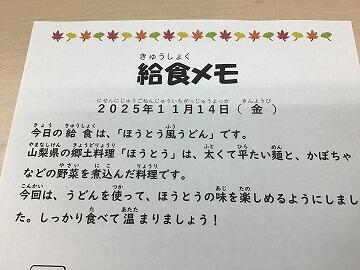 きゅうしょく
給食メモ
にせんにじゅうごねんじゅういちがつじゅうよっか きんようび
2025年11月14日(金)
きょう きゅうしょく ふう
今日の給食は、「ほうとう風うどん」です。
やまなしけん きょうどりょうり ふと ひら めん
山梨県の郷土料理「ほうとう」は、太くて平たい麺と、かぼちゃ
やさい にこ りょうり
などの野菜を煮込んだ料理です。
こんかい つか あじ たの
今回は、うどんを使って、ほうとうの味を楽しめるようにしまし
た あたた
た。しっかり食べて温まりましょう!